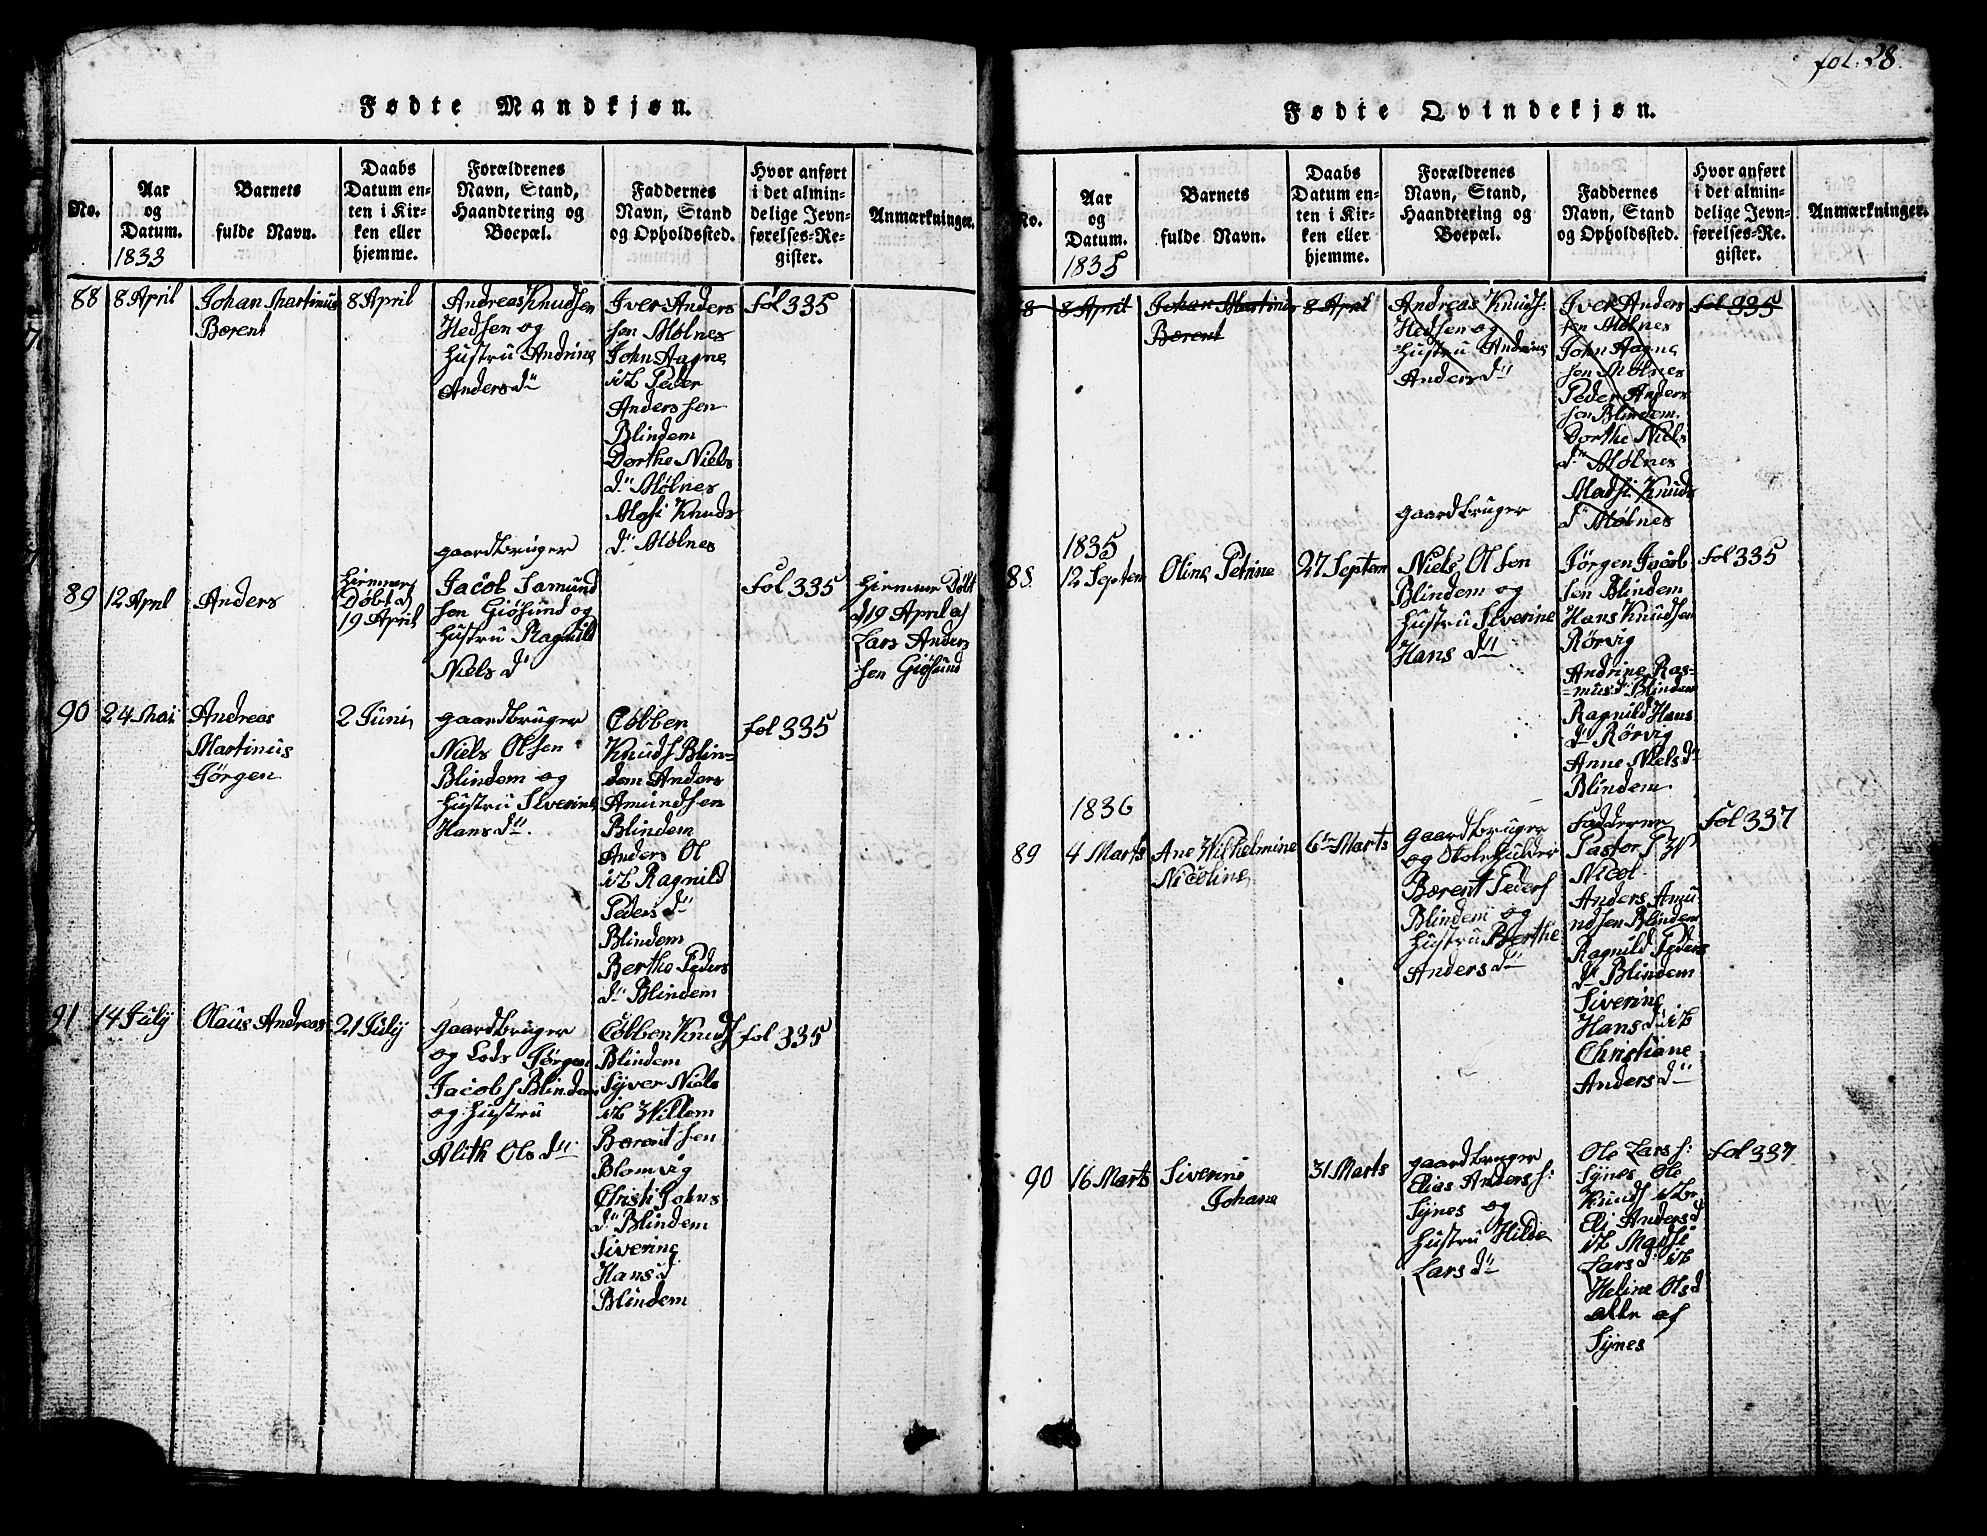 fol: 28.
Fødte Mandkjøn.
No.
Aar
og
Datum.
1833
Barnets
fulde Navn.
Daabs
Datum en-
ten i Kir-
ken eller
hjemme.
Forældrenes
Navn, Stand,
Haandtering og
Boepæl.
Faddernes
Navn, Stand
og Opholdssted.
Hvor anført
i det almin-
delige Jevn-
førelses-Re-
gister.
Anmærkninger.
88
8 April
Johan Martinus
Bærent
8 April
Andreas Knudsen
Hedsen og
Hustru Andrine
Anders dn
Iver Anders
sen Mølnes
John Aagne
ib Peder
Anderssen
Blindem
Dorthe Niels
dn Mølnes
Knuds
dn Mølnes
fol 335
89
12 April
Anders
Hiemme
Døbt d
19 April
gaardbruger
Jacob Samund
sen Giøsund og
Hustru Ragnild
Niels dn
fol 335
Hiemme Døbt
d 19 April af
Lars Anders
sen Giøsund
90
24 Mai
Andreas
Martinus
Jørgen
2 Juni
gaardbruger
Niels Olsen
Blindem og
Hustru Siverine
Hans dn.
Cobben
Knuds Blin-
dem Anders
Amundsen
Blindem
Anders Ol
ib Ragnild
Peders dn
Blindem
Berthe Peders
dn Blindem
fol 335
91
14 July
Olaus Andreas
21 July
gaardbruger
og Lods Jørgen
Jacobs Blindem
og Hustru
Alith Ols dn
Cobben Knuds
Blindem
Syver Niels
ib Willem
Bærentsen
Blomvig
Christi Johns
dn Blindem
Siverine
Hans d
Blindem
fol 335
Fødte Qvindekjøn.
No.
Aar
og
Datum.
1835
Barnets
fulde Navn.
Daabs
Datum en-
ten i Kir-
ken eller
hjemme.
Forældrenes
Navn, Stand,
Haandtering og
Boepæl.
Faddernes
Navn, Stand
og Opholdssted.
Hvor anført
i det almin-
delige Jevn-
førelses-Re-
gister.
Anmærkninger.
8
8 April
Johan Martinus
Bærent
8 April
Andreas Knuds:
Hedsen og
Hustru Andrine
Anders dn
Iver Anders
sen Mølnes
John Aagne
sen Mølnes
Peder Anders
sen Blindem
Dorthe Niels
dn Mølnes
Madsi Knuds
dn Mølnes
fol 335
1835
88
12 Septem
Oline Petrine
27 Septem
gaardbruger
Niels Olsen
Blindem og
Hustru Siverine
Hans dn
Jørgen Jacob
sen Blindem
Hans Knudsen
Rørvig
Andrine Ras-
=mus d Blindem
Ragnild Hans
dn Rørvig
Anne Niels d
Blindem
fol 335
1836
89
4 Marts
Ane Wilhelmine
Nicoline
6te Marts
gaardbruger
og
Bærent Peders
Blindem og
Hustru Berthe
Anders dn
Fadderne
Pastor
Nicol
Anders Amu
ndsen Blindem
Ragnild Peders
dn Blindem
Siverine
Hans d ib
Christiane
Anders dn
fol 337
90
16 Marts
Siverine
Johane
31 Marts
gaardbruger
Elias Anders s:
Synes og
Hustru Hilde
Lars dn
Ole Lars s:
Synes Ole
Knuds ib
Eli Anders d
ib Madsi
Lars d ib
Heline Ols d
alle af
Synes
fol 337